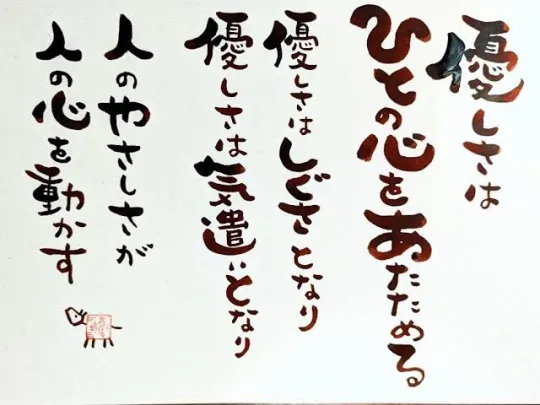 優しさは
ひとの心をあたためる
優しさはしぐさとなり
優しさは気遣いとなり
人のやさしさが
人の心を動かす